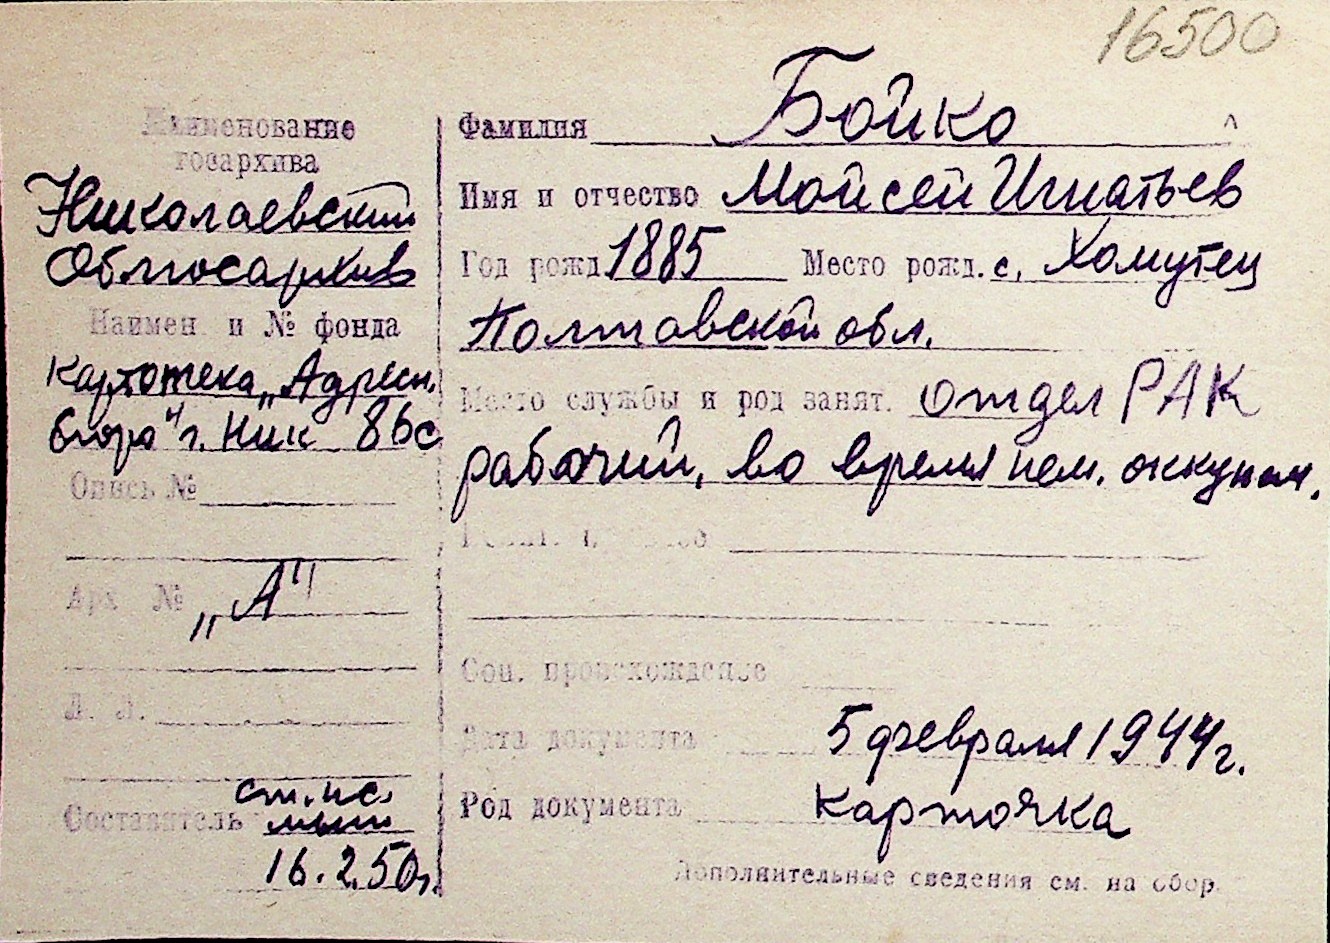 16500
Наименование
госархива
Николаевский
Облгосархив
Наимен и № фонда
Картотека „Адресн.
бюро" г. Ник 86с
Опись №
Арх №
„А"
Л. Л.
Составитель
16.2.50г.
Фамилия Бойко
Имя и отчество Мойсей Игнатьев
Год рожд 1885 Место рожд. с. Хомутец
Полтавской обл.
Место службы и род занят. отдел РАК
рабочий, во время нем. оккупац.
Соц. происхожденье
Дата документа 5 февраля 1944г.
Род документа Карточка
Дополнительные сведения см. на обор.